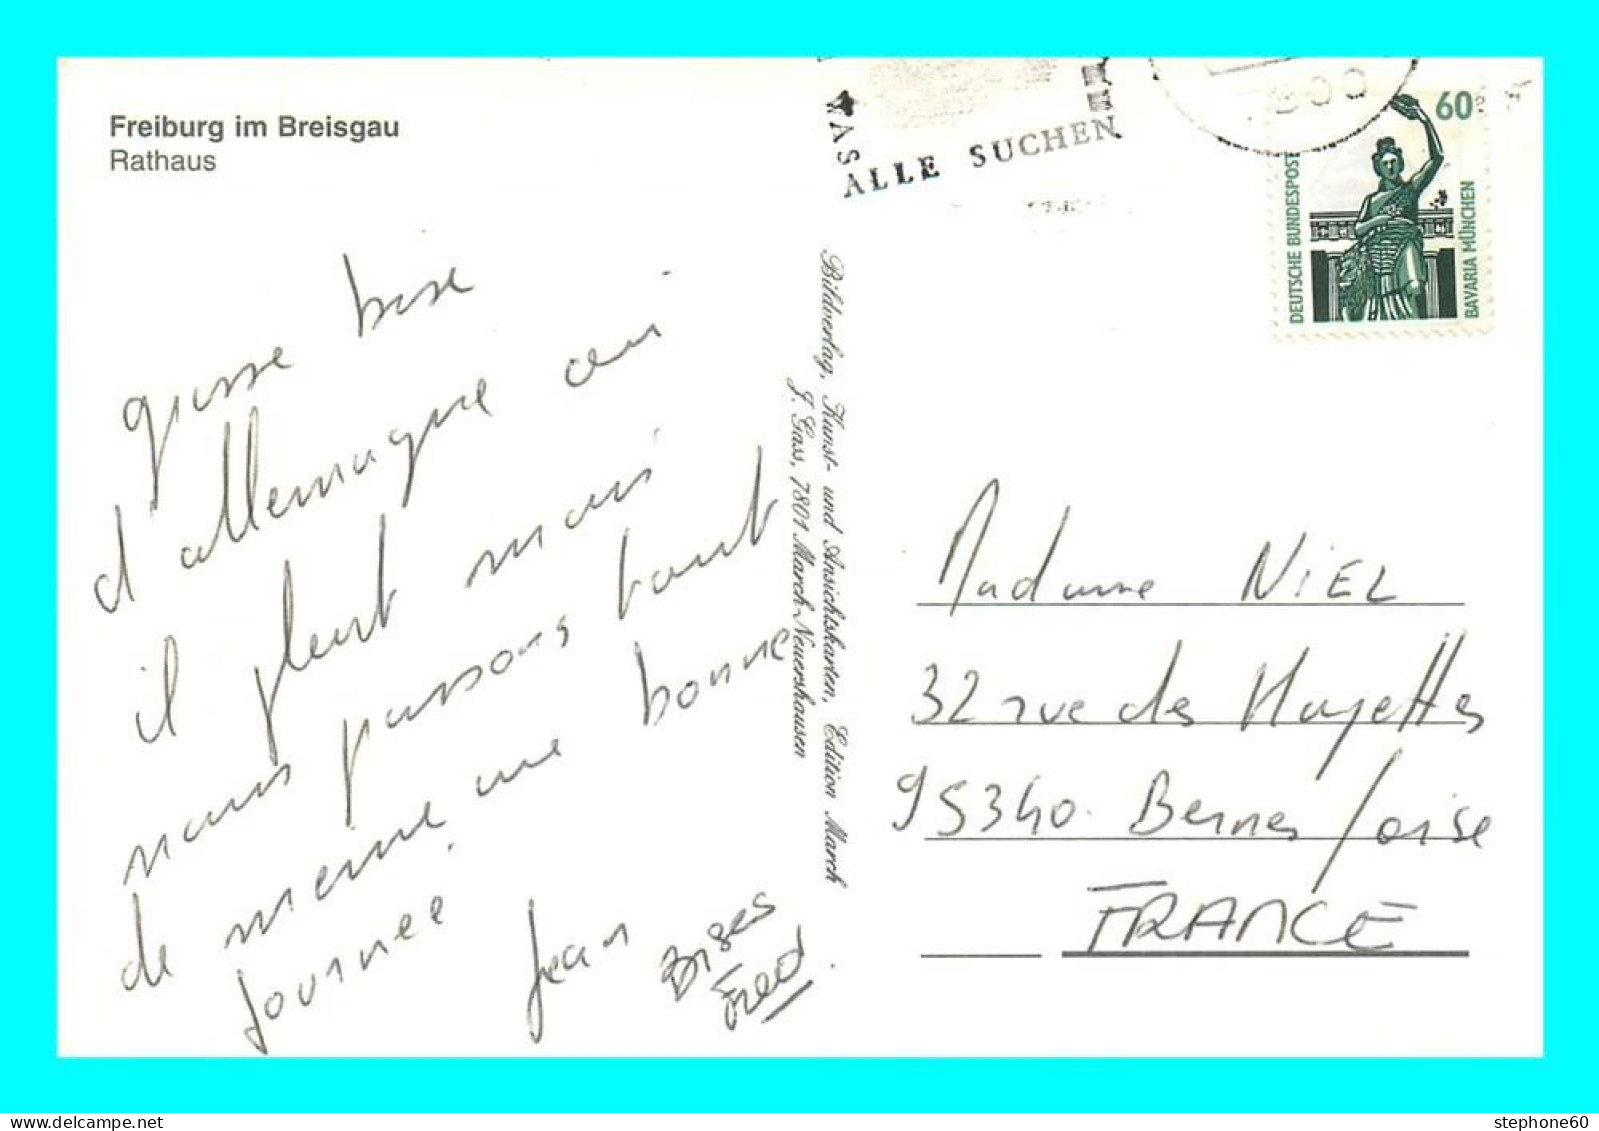 Freiburg im Breisgau
Rathaus
grosse bise
d'allemagne oui
il pleut mais
nous passons tout
de meme une bonne
journée.
Jean
Bises
Fred
Bildverlag, Kunst- und Ansichtskarten, Edition March
J. Gass, 7801 March-Neuershausen
WAS
ALLE SUCHEN
60
DEUTSCHE BUNDESPOST
BAVARIA MÜNCHEN
Madame NIEL
32 rue des Hayettes
95340 Bernes/oise
FRANCE
stephone60